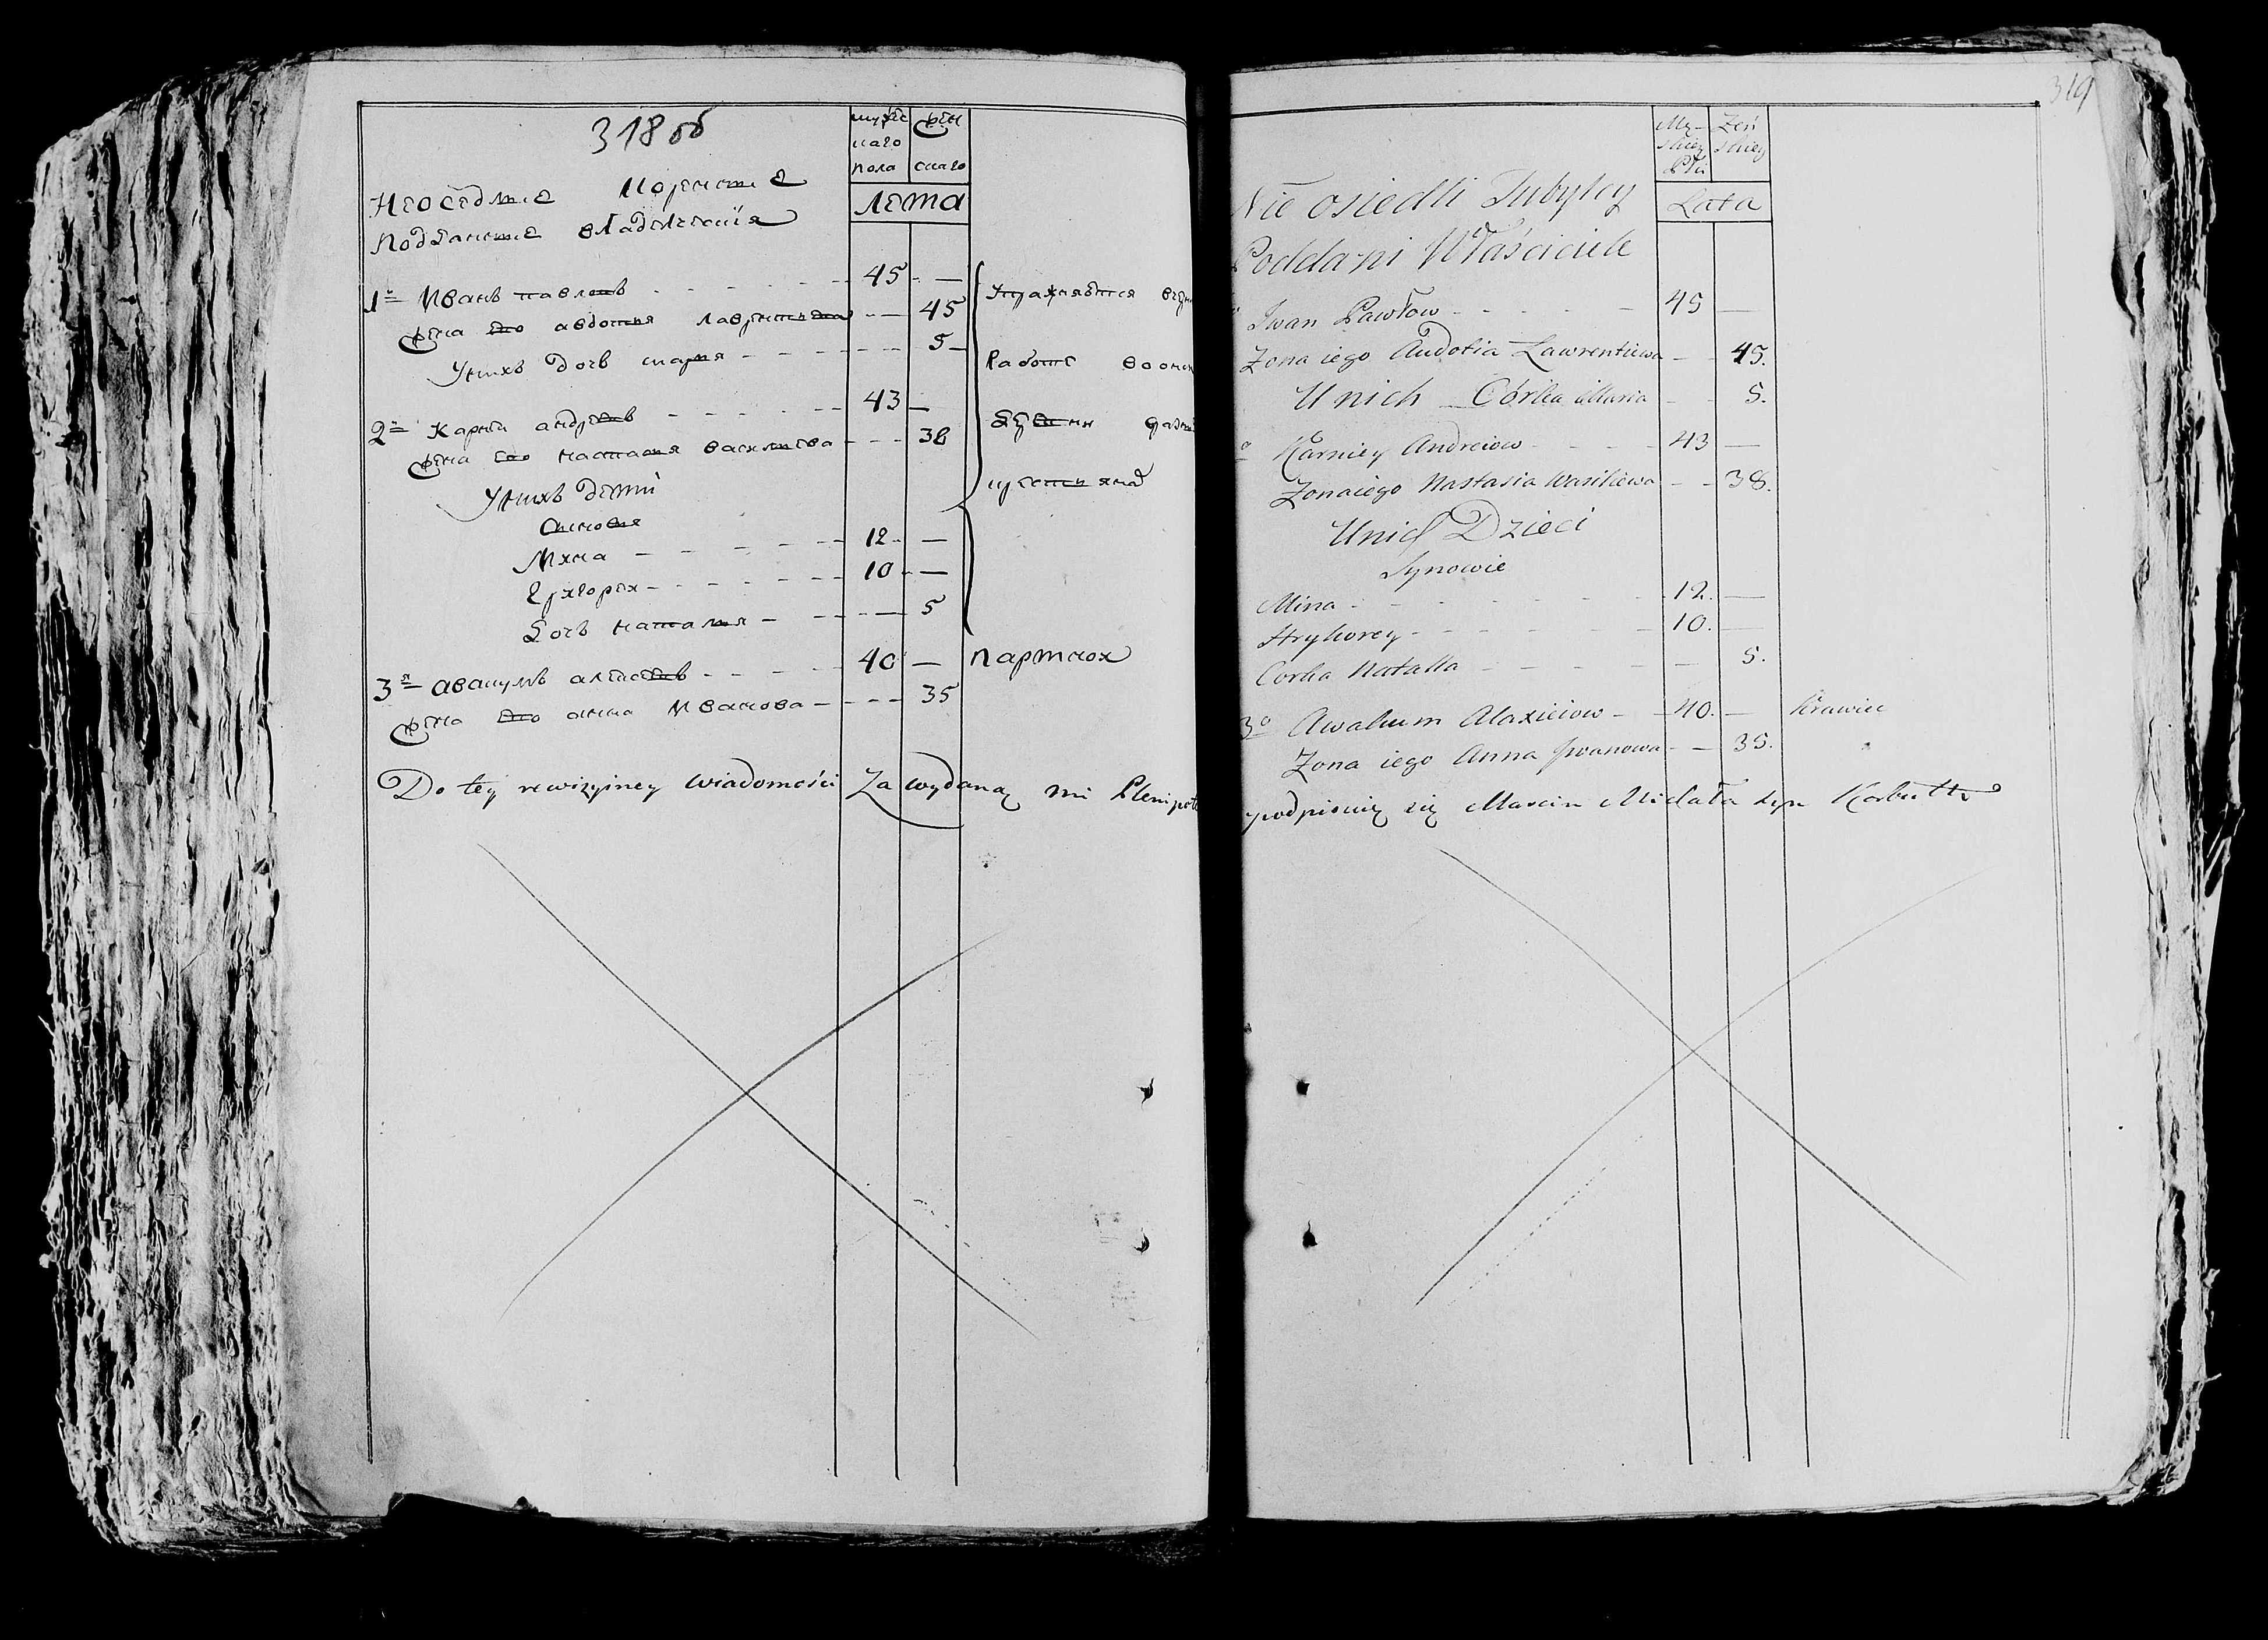 318 об
мужс
каго
пола
жен
скаго
Лета
Неоседлые коренные
подданные владелския
1й Иванъ павловъ 45 —
жена его авдотья Лаврентьева 45
У нихъ дочь марья 5
2й Карней андреевъ 43 —
жена его настасья васильева 38
У нихъ дети
Сыновья
Мина 12 —
Григорей 10 —
Дочь наталья 5
3й авакумъ алексеевъ 40 — партной
жена его анна Иванова 35
Упражняются
Работе
крестьянка
Do tey rewizyiney wiadomości Za wydaną mi Plenipote
319
Mę-
skiey
Płci
Żeń
skiey
Lata
Nie osiedli Tubylcy
Poddani Właściciele
Iwan Pawłow 45 —
Zona iego Audotia Lawrentiewa 45.
U nich Córka Maria 5.
Karniey Andreiow 43 —
Zona iego Nastasia Wasiliewa 38.
U nich Dzieci
Synowie
Mina 12. —
Hryhorey 10. —
Corka Natalla 5.
3o Awakum Alaxieiow 40. — Krawiec
Zona iego Anna Iwanowa 35.
podpisuię się Marcin Michała syn Korbutt